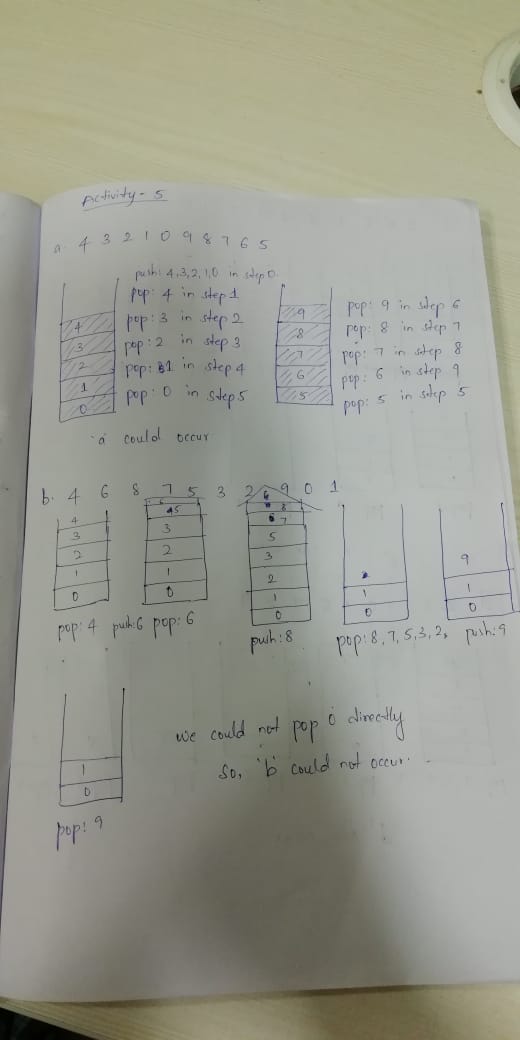 Activity - 5
a. 4 3 2 1 0 9 8 7 6 5
push: 4,3,2,1,0 in step 0.
pop: 4 in step 1
pop: 3 in step 2
pop: 2 in step 3
pop: 1 in step 4
pop: 0 in step 5
4
3
2
1
0
9
8
7
6
5
pop: 9 in step 6
pop: 8 in step 7
pop: 7 in step 8
pop: 6 in step 9
pop: 5 in step 5
'a' could occur
b. 4 6 8 7 5 3 2 9 0 1
4
3
2
1
0
pop: 4 push: 6 pop: 6
5
3
2
1
0
8
7
5
3
2
1
0
push: 8
1
0
pop: 8, 7, 5, 3, 2,
9
1
0
push: 9
1
0
pop: 9
we could not pop 0 directly
So, 'b' could not occur.